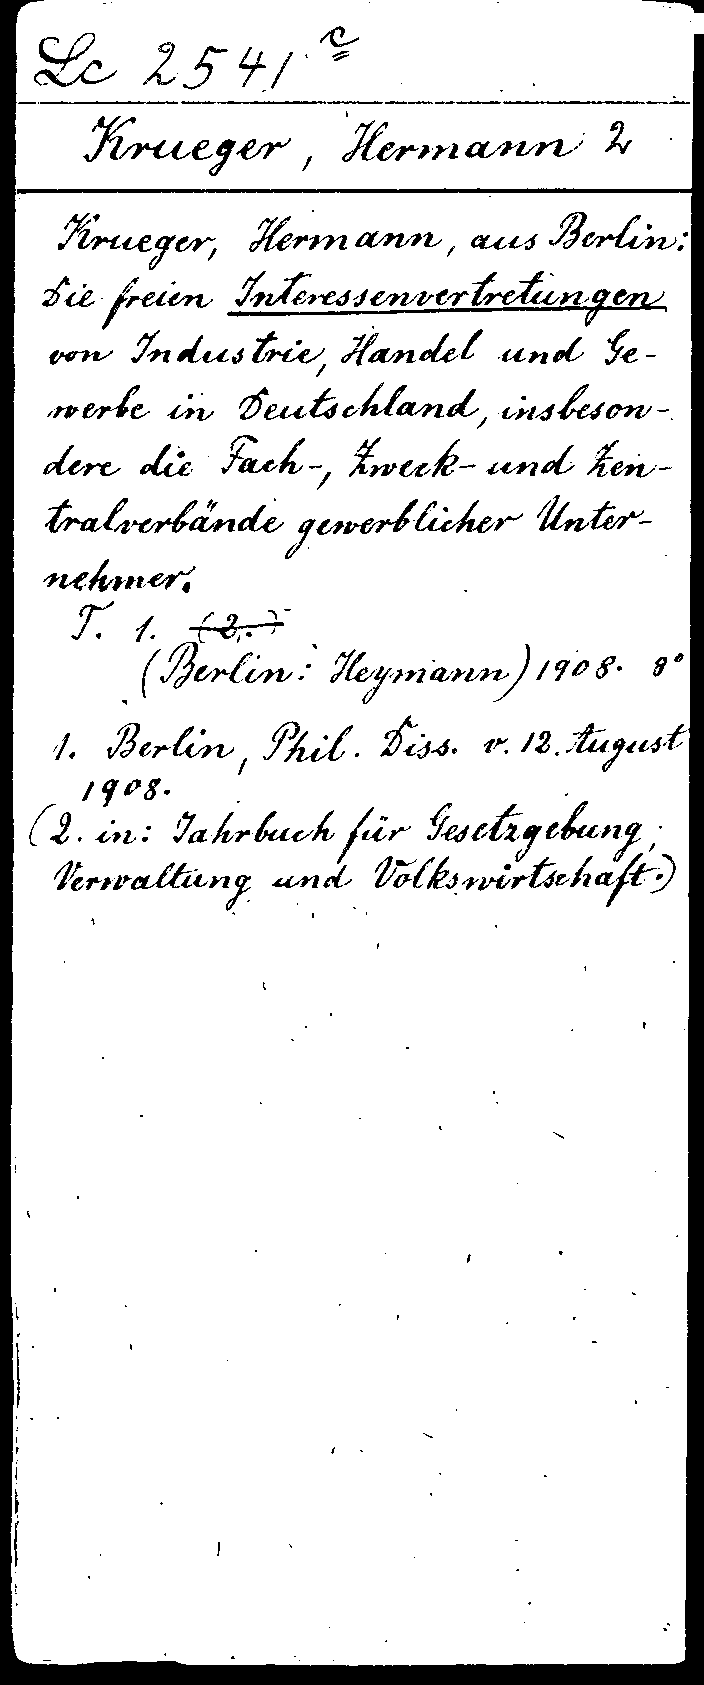 Lc 2541 c
Krueger, Hermann 2
Krueger, Hermann, aus Berlin:
Die freien Interessenvertretungen
von Industrie, Handel und Ge-
werbe in Deutschland, insbeson-
dere die Fach-, Zweck- und Zen-
tralverbände gewerblicher Unter-
nehmer.
T. 1. (2.)
(Berlin: Heymann) 1908. 8°
1. Berlin, Phil. Diss. v. 12. August
1908.
(2. in: Jahrbuch für Gesetzgebung,
Verwaltung und Volkswirtschaft.)